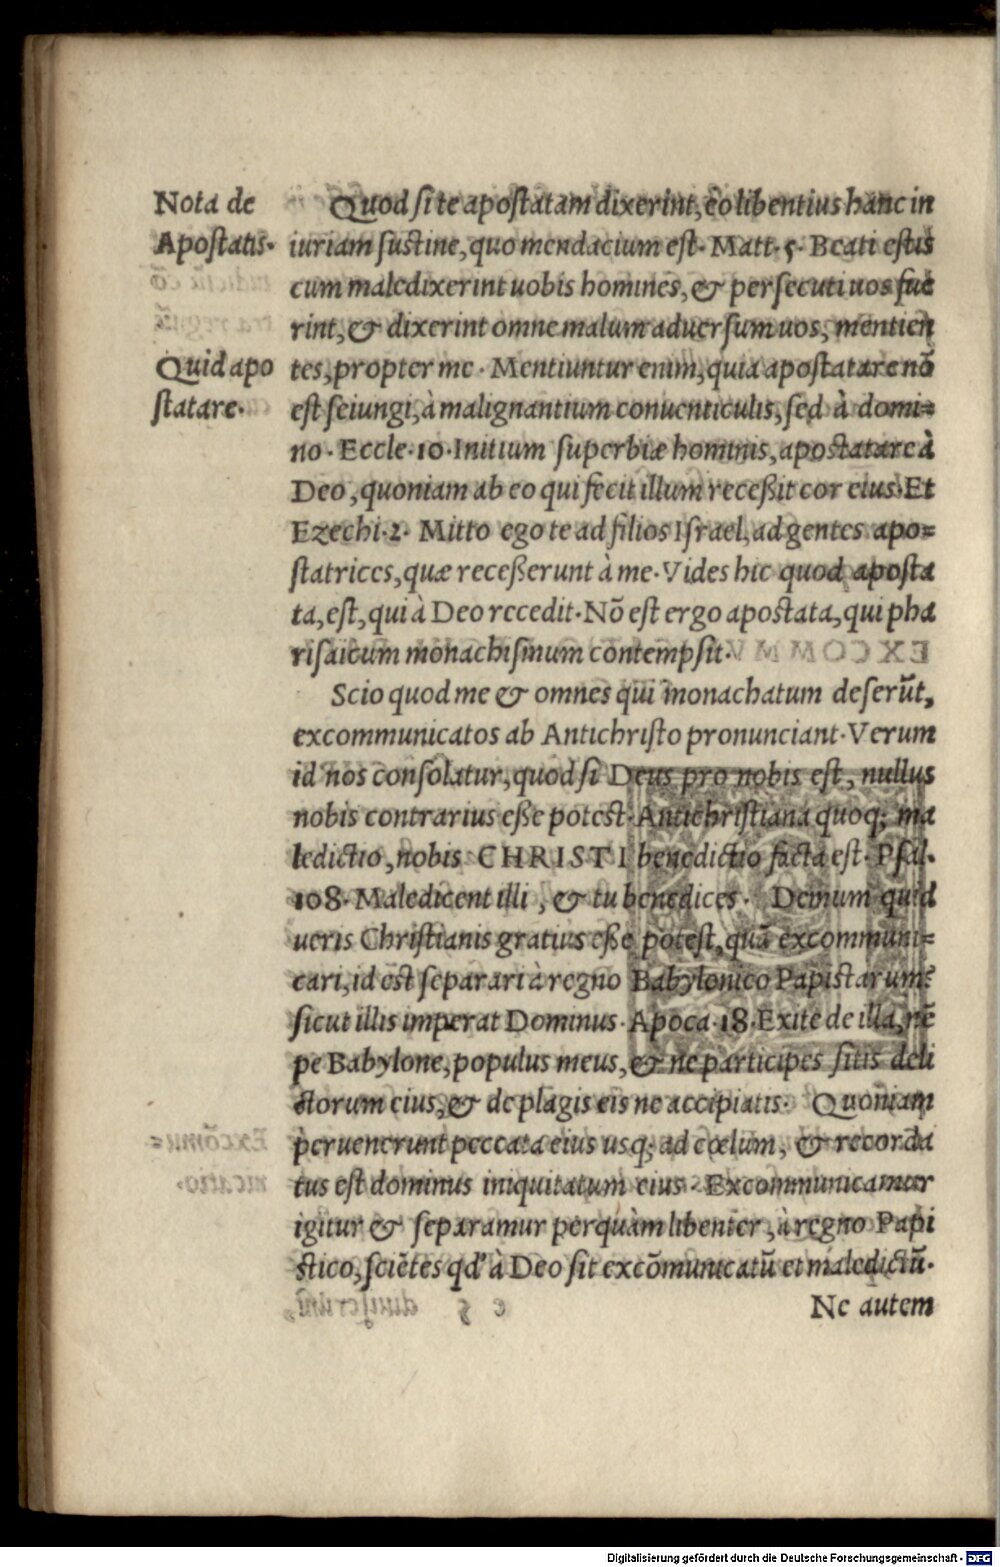 Nota de
Apostatis.
Quid apo
statare.
Quod si te apostatam dixerint, eo libentius hanc in
iuriam sustine, quo mendacium est. Matt. 5. Beati estis
cum maledixerint uobis homines, & persecuti uos fue
rint, & dixerint omne malum aduersum uos, mentien
tes, propter me. Mentiuntur enim, quia apostatare nō
est seiungi, à malignantium conuenticulis, sed à domi=
no. Eccle. 10. Initium superbiæ hominis, apostatare à
Deo, quoniam ab eo qui fecit illum receßit cor eius. Et
Ezechi. 2. Mitto ego te ad filios Israel, ad gentes apo=
statrices, quæ receßerunt à me. Vides hic quod aposta
ta, est, qui à Deo recedit. Nō est ergo apostata, qui pha
risaicum monachismum contempsit.
Scio quod me & omnes qui monachatum deserūt,
excommunicatos ab Antichristo pronunciant. Verum
id nos consolatur, quod si Deus pro nobis est, nullus
nobis contrarius eße potest. Antichristiana quoq; ma
ledictio, nobis CHRISTI benedictio facta est. Psal.
108. Maledicent illi, & tu benedices. Demum quid
ueris Christianis gratius eße potest, quā excommuni=
cari, id est separari à regno Babylonico Papistarum?
sicut illis imperat Dominus. Apoca. 18. Exite de illa, nē
pe Babylone, populus meus, & ne participes sitis deli
ctorum eius, & de plagis eis ne accipiatis. Quoniam
peruenerunt peccata eius usq; ad cœlum, & recorda
tus est dominus iniquitatum eius. Excommunicamur
igitur & separamur perquàm libenter, à regno Papi
stico, sciētes qd' à Deo sit excōmunicatū et maledictū.
Ne autem
Digitalisierung gefördert durch die Deutsche Forschungsgemeinschaft - DFG